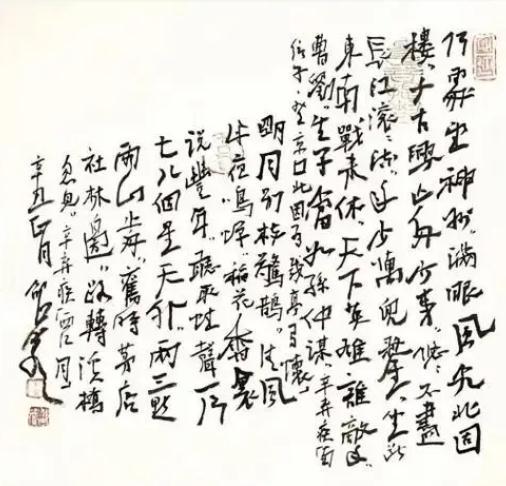 何處望神州滿眼風光北固
樓千古興亡多少事悠々不盡
長江滾々流年少萬兜鍪坐
東南戰未休天下英雄誰敵手
曹劉生子當如孫仲謀辛弃疾南
子登京口北固亭有懷
明月別枝驚鵲清風
半夜鳴蟬稻花香裏
說豐年聽取蛙聲一片
七八個星天外兩三點
雨山前舊時茅店
社林邊路轉溪橋
忽見辛弃疾西江月
辛丑正月